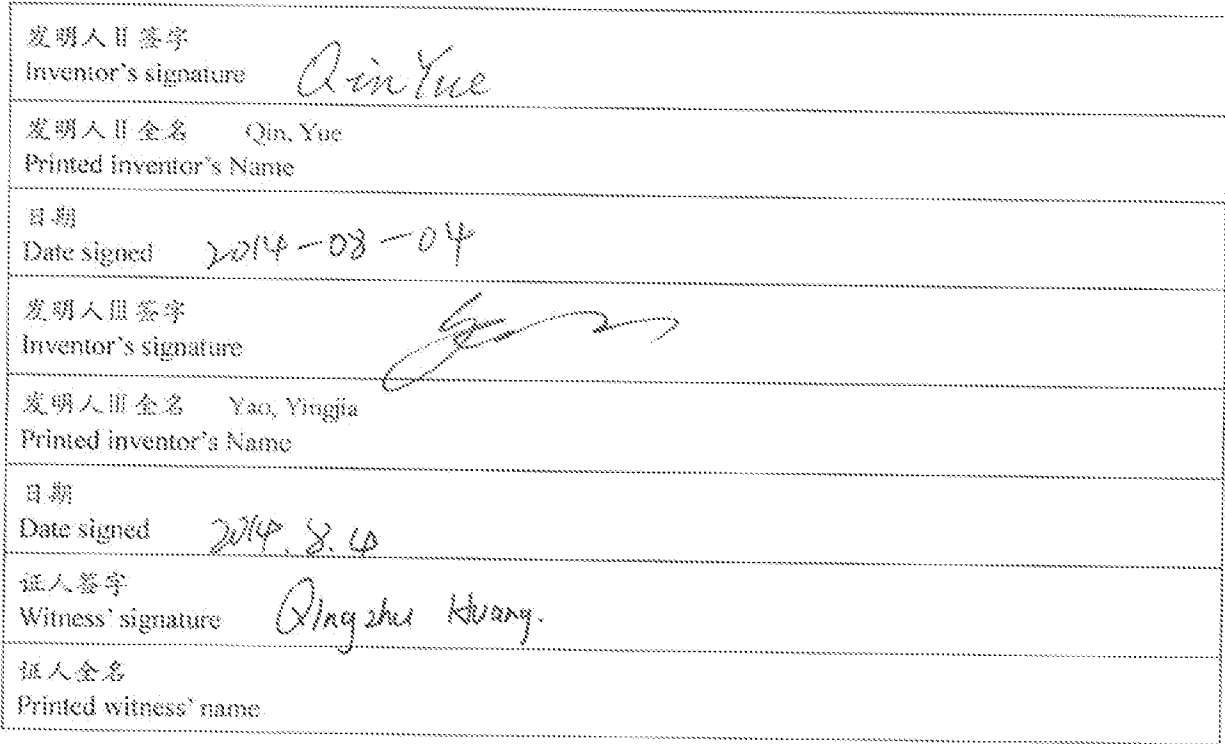 发明人Ⅱ签字
Inventor's signature Qin Yue
发明人Ⅱ全名 Qin, Yue
Printed inventor's Name
日期
Date signed 2014-08-04
发明人Ⅲ签字
Inventor's signature
发明人Ⅲ全名 Yao, Yingjia
Printed inventor's Name
日期
Date signed 2014.8.4
证人签字
Witness' signature Qingzhu Huang.
证人全名
Printed witness' name